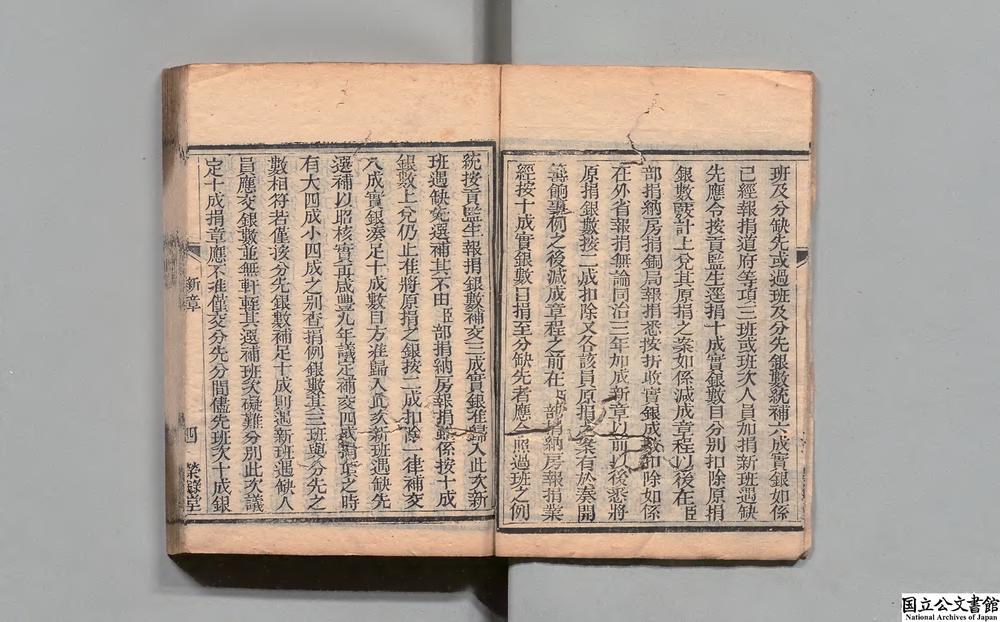 班及分缺先或過班及分先銀數統補六成實銀如係
已經報捐道府等項三班或班次人員加捐新班遇缺
先應令按貢監生逕捐十成實銀數目分別扣除原捐
銀數覈計上兌其原捐之案如係減成章程以後在臣
部捐納房捐銅局報捐悉按折收實銀成數扣除如係
在外省報捐無論同治三年加成新章以前以後悉將
原捐銀數按二成扣除又各該員原捐之案有於奏開
籌餉事例之後減成章程之前在臣部捐納房報捐業
經按十成實銀數目捐至分缺先者應令照過班之例
統按貢監生報捐銀數補交三成實銀准歸入此次新
班遇缺先選補其不由臣部捐納房報捐雖係按十成
銀數上兌仍止准將原捐之銀按二成扣除一律補交
八成實銀湊足十成數目方准歸入此次新班遇缺先
選補以昭核實再咸豐九年議定補交四成捐章之時
有大四成小四成之別查捐例銀數其三班與分先之
數相符若僅按分先銀數補足十成則遇新班遇缺人
員應交銀數並無軒輊其選補班次礙難分別此次議
定十成捐章應不准僅交分先分間儘先班次十成銀
新章
四
榮錄堂
国立公文書館
National Archives of Japan